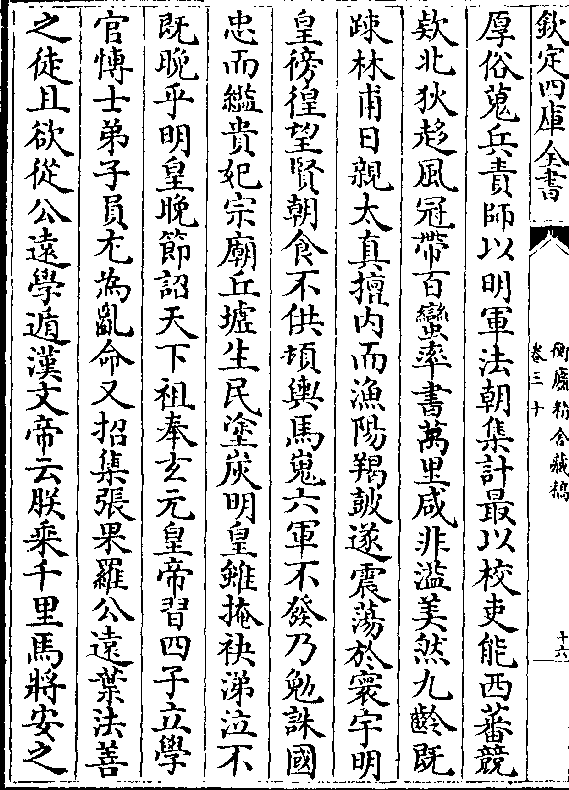 欽定四庫全書
衡廬精舍藏稿
卷三十
十六
厚俗蒐兵責師以明軍法朝集計最以校吏能西蕃競
欵北狄趍風冠帶百蠻率書萬里咸非濫美然九齡既
踈林甫日親太真擅内而漁陽羯皷遂震蕩於寰宇明
皇徬徨望賢朝食不供頓輿馬嵬六軍不發乃勉誅國
忠而縊貴妃宗廟丘墟生民塗炭明皇雖掩袂涕泣不
既晚乎明皇晚節詔天下祖奉玄元皇帝習四子立學
官博士弟子員尤為亂命又招集張果羅公遠葉法善
之徒且欲從公遠學遁漢文帝云朕乘千里馬將安之